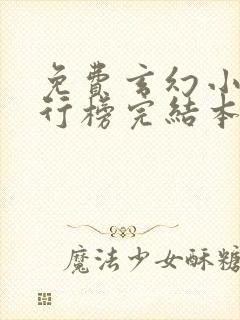 免費玄幻小
行榜完結本
魔法少女酥糖